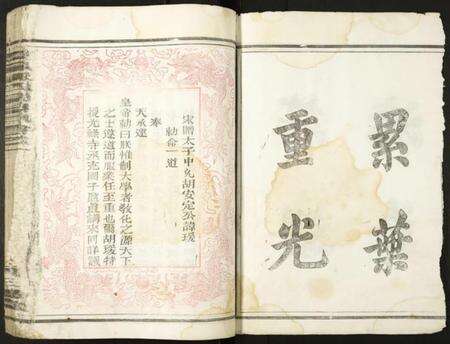 累葉
重光
宋贈太子中允胡安定公諱瑗
勅命一道
奉
天承運
皇帝勅曰朕惟制大學者敎化之源天下
之士遵道而服業任至重也爾胡瑗特
授光祿寺丞充國子監直講夫何